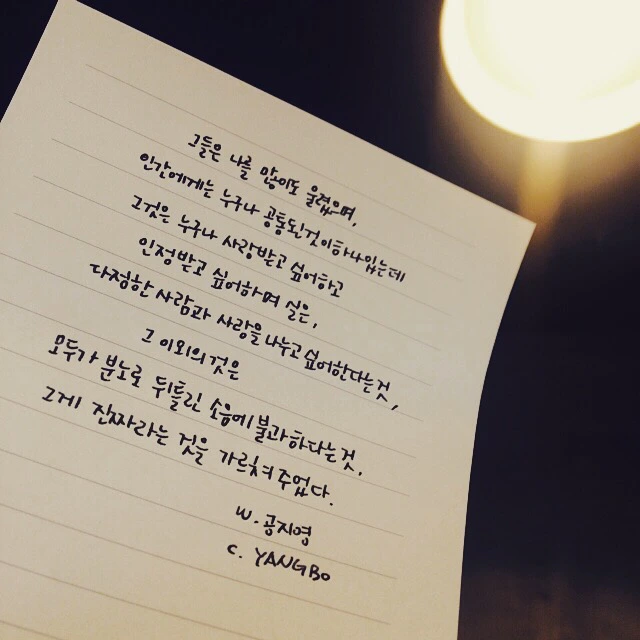 그들은 나를 많이도 울렸으며,
인간에게는 누구나 공통된것이하나있는데
그것은 누구나 사랑받고 싶어하고
인정받고 싶어하며 실은,
다정한 사람과 사랑을 나누고 싶어한다는것,
그 이외의 것은
모두가 분노로 뒤틀린 소음에 불과하다는것,
그게 진짜라는 것을 가르쳐주었다.
w. 공지영
c. YANGBO